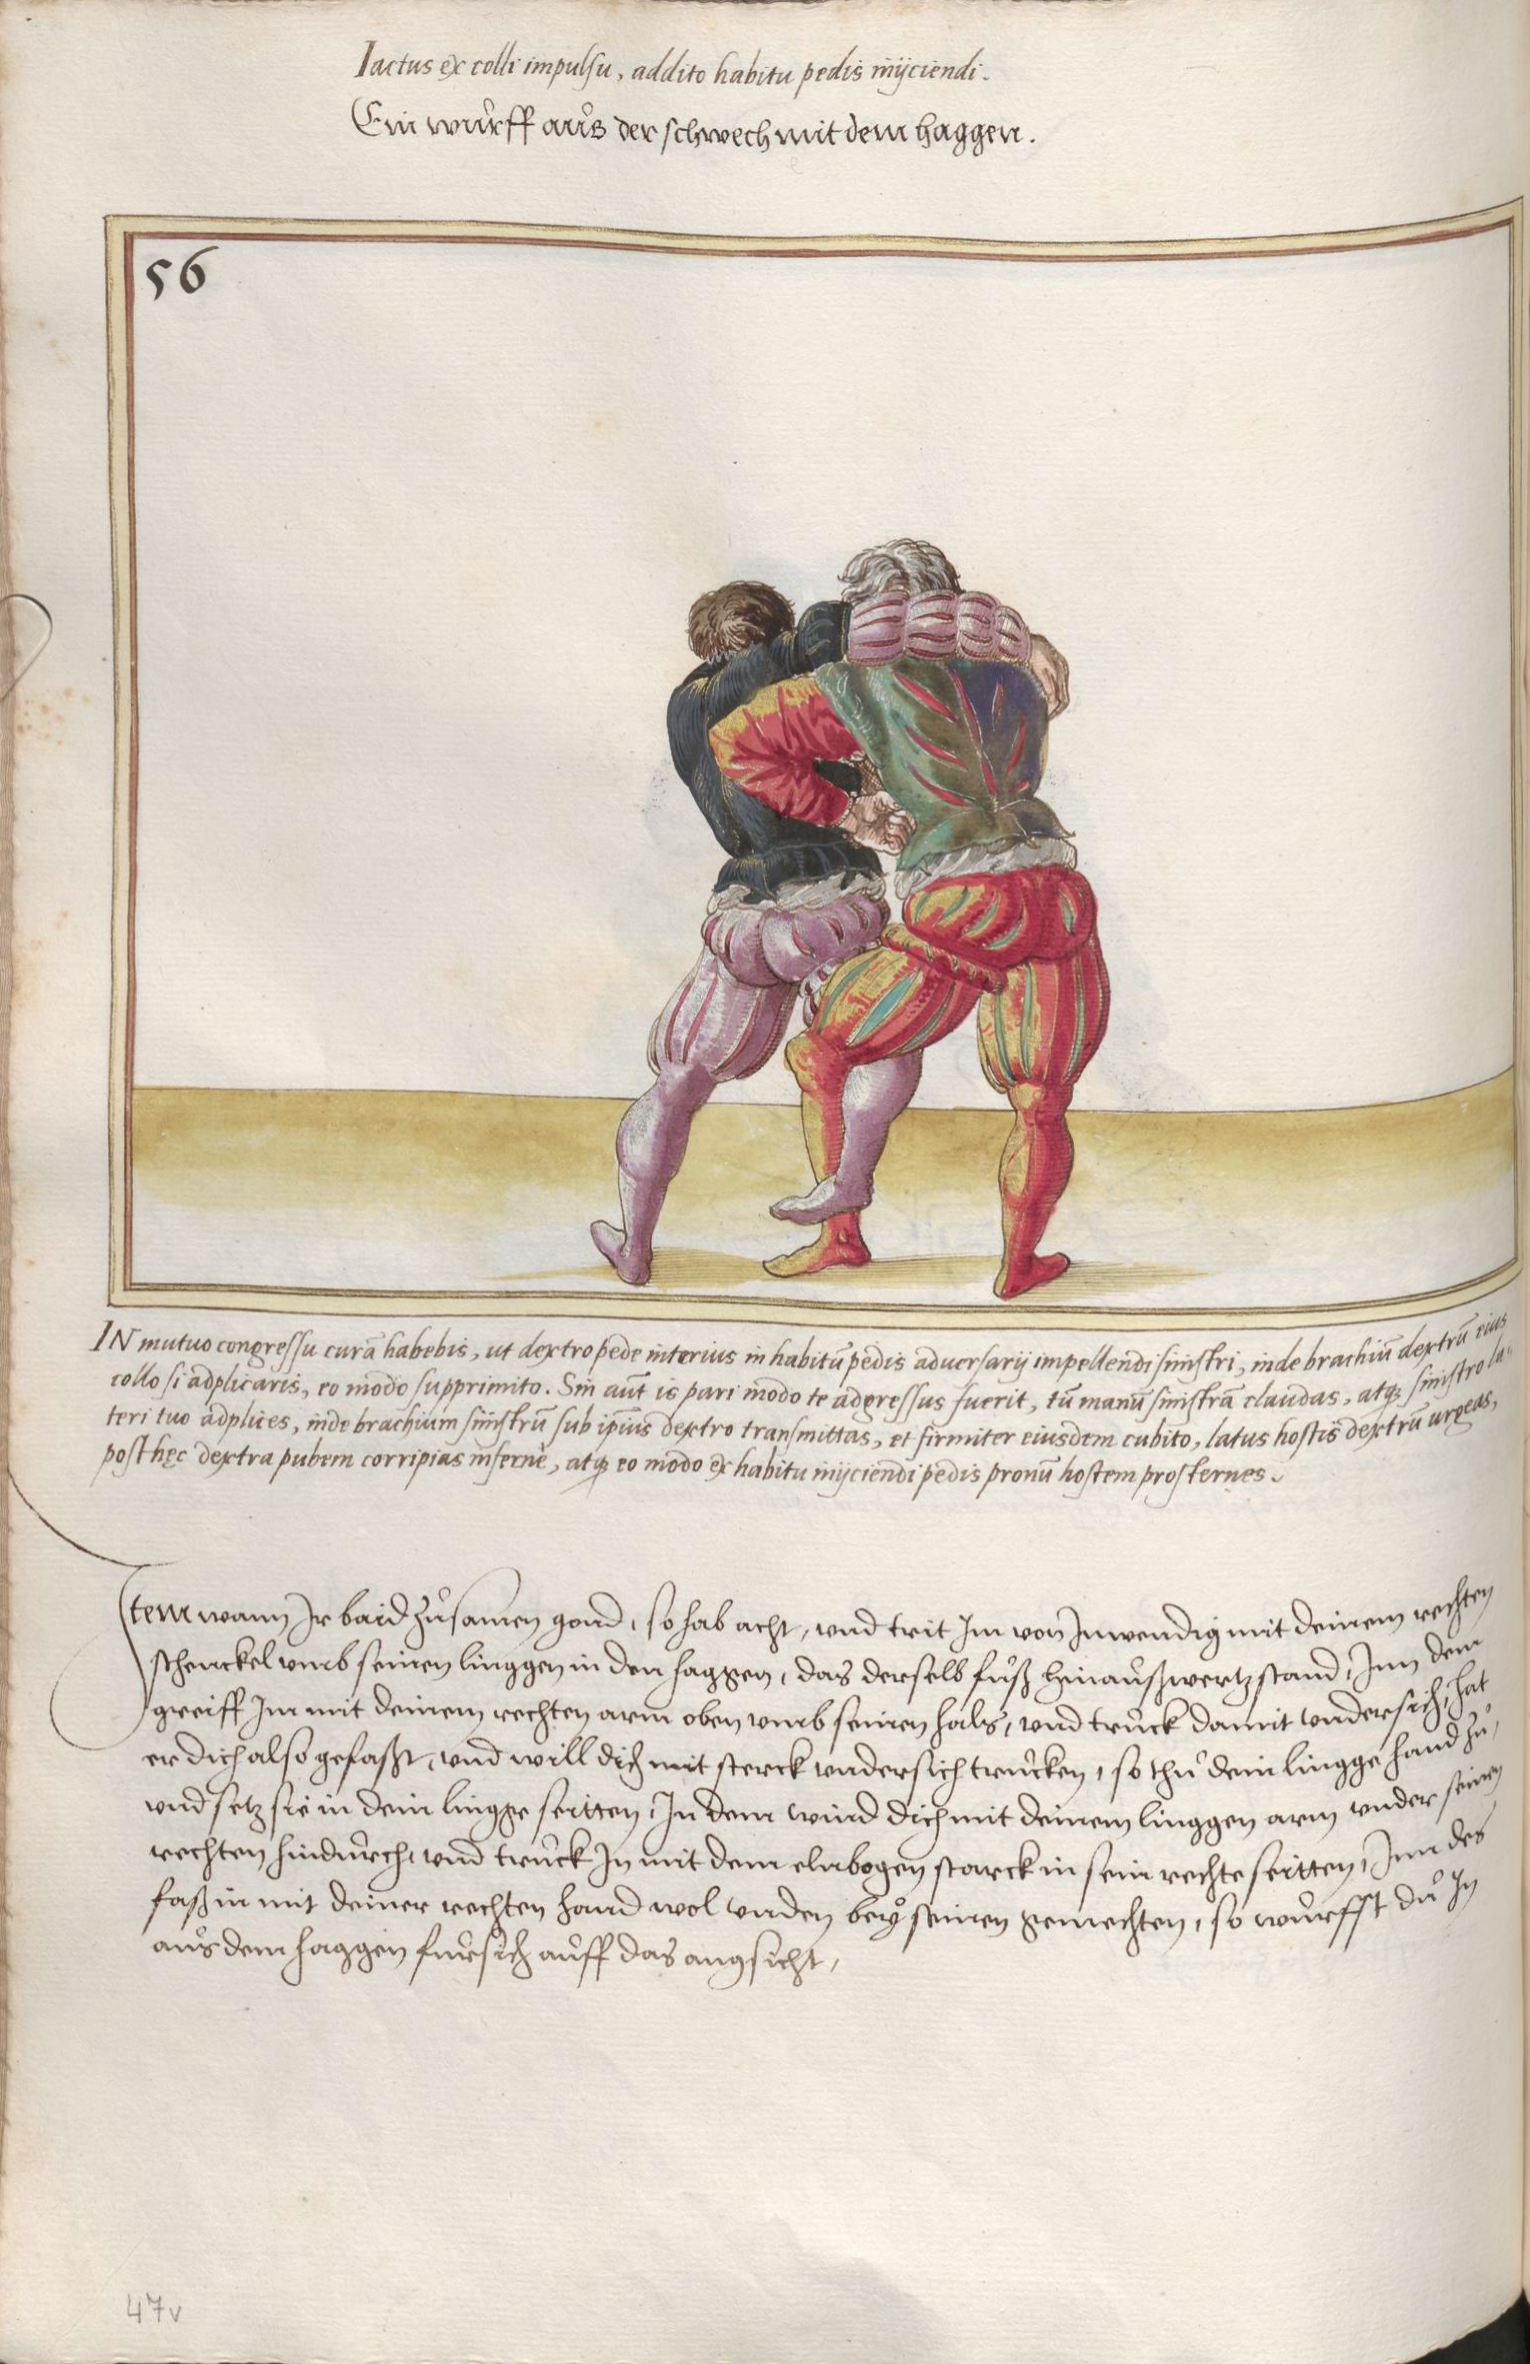 Iactus ex colli impulsu, addito habitu pedis inijciendi.
Ein wůrff aůs der schwech mit dem haggen.
56
IN mutuo congressu curā habebis, ut dextro pede interius in habitū pedis adversarij impellendi sinistri, inde brachiū dextrū eius
collo si adplicaris, eo modo supprimito. Sin aūt is pari modo te adgressus fuerit, tū manū sinistrā claudas, atq₃ sinistro la-
teri tuo adplices, inde brachium sinistrū sub ipsius dextro transmittas, et firmiter eiusdem cubito, latus hostis dextrū urgeas,
post hęc dextra pubem corripias infernè, atq₃ eo modo ex habitu inijciendi pedis pronū hostem prosternes.
Item wann Ir baid zůsamen gond, so hab acht, vnd trit Im von Inwendig mit deinem rechten
schenckel vmb seinen linggen in den haggen, das derselb fůß hinaůßwertz stand, Inn dem
greiff Im mit deinem rechten arm oben vmb seinen hals, vnd trůck damit vndersich, hat
er dich also gefaßt, vnd will dich mit sterck vndersich trůcken, so thů dein lingge hand zů,
vnd setz sie in dein lingge seitten, In dem wind dich mit deinem linggen arm vnder seinen
rechten hindůrch, vnd trůck In mit dem elnbogen starck in sein rechte seitten, Inn des
faß in mit deiner rechten hand wol vnden bey seinen gemechten, so wůrffst dů In
aůs dem haggen fůrsich aůff das angsicht,
47v